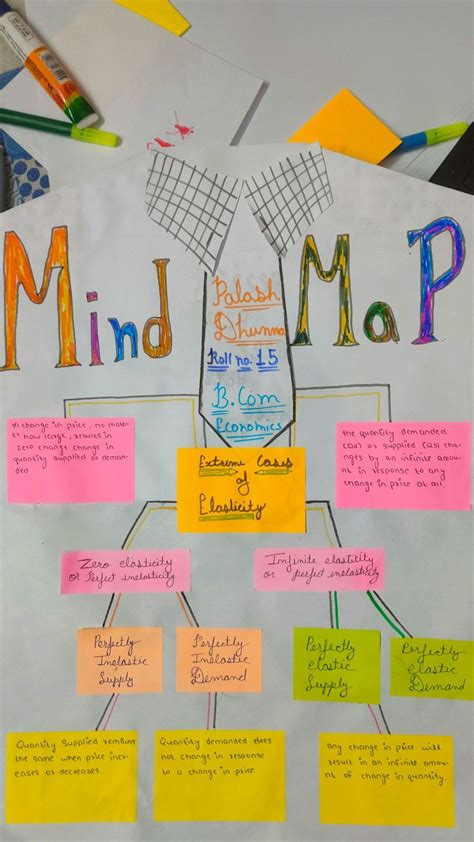 Mind MaP
Palash
Dhunna
Roll no. 15
B.Com
Economics
A change in price, no mat
er how large, results in
zero change change in
quantity supplied or dema
nded
the quantity demanded
(Qd) or supplied (Qs) cha
nges by an infinite amou
nt in response to any
change in price at all.
Extreme Cases
of
Elasticity
Zero elasticity
or Perfect inelasticity
Infinite elasticity
or perfect inelasticity
Perfectly
Inelastic
Supply
Perfectly
Inelastic
Demand
Perfectly
elastic
Supply
Perfectly
elastic
Demand
Quantity Supplied remains
the same when price incr
eases or decreases.
Quantity demanded does
not change in response
to a change in price
any change in price will
result in an infinite amou
nt of change in quantity.